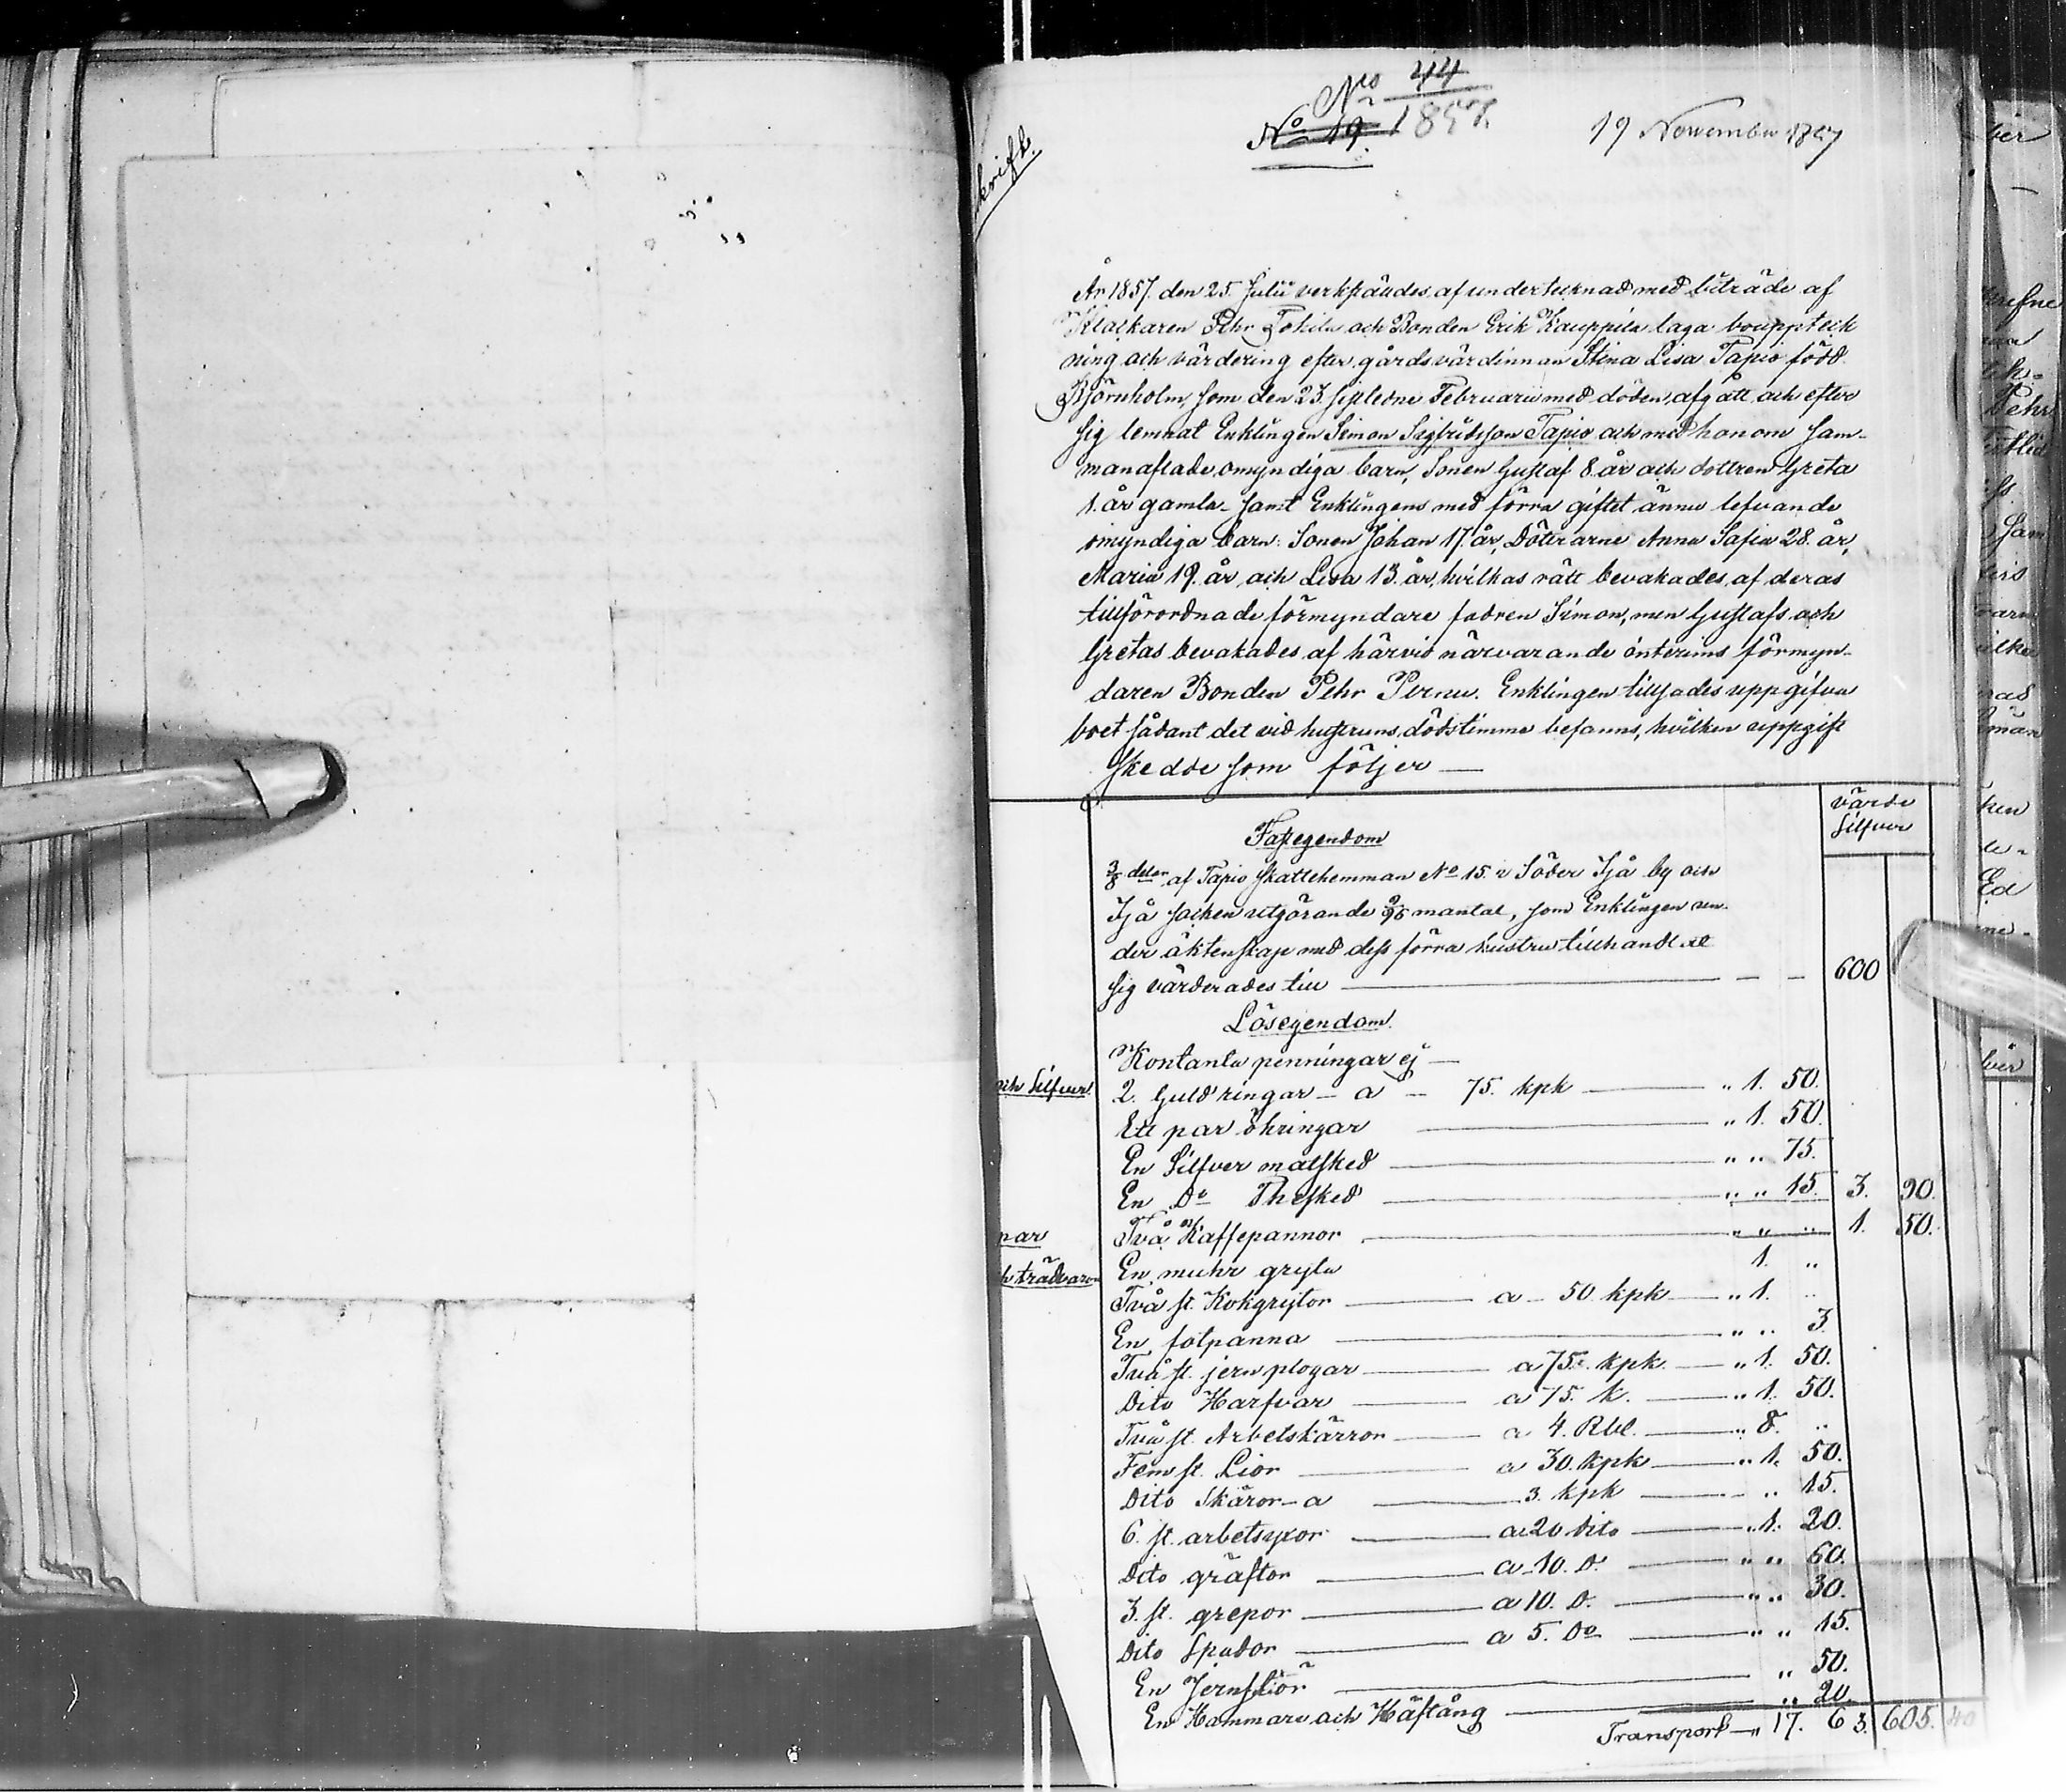 No 44
No 19. 1857.
19 November 1857
skrift.
År 1857. den 25. Julii verkställdes af undertecknad med biträde af
Klåckaren Pehr Tokila och Bonden Erik Kauppila laga bouppteck
ning och värdering efter gårdsvärdinnan Stina Lisa Tapio född
Björnholm, som den 23. sistledne Februarii med döden afgått och efter
sig lemnat Enklingen Simon Sigfridsson Tapio och med honom sam-
manaflade omyndiga barn, Sonen Gustaf 8 år och dottren Greta
1. år gamla samt Enklingens med förra giftet ännu lefvande
omyndiga barn: Sonen Johan 17. år, Döttrarne Anna Safia 28. år,
Maria 19. år, och Lisa 13. år, hvilkas rätt bevakades af deras
tillförordnade förmyndare fadren Simon, men Gustafs och
Gretas bevakades af härvid närvarande interims förmyn-
daren Bonden Pehr Pernu. Enklingen tillsades uppgifva
boet sådant det vid hustruns dödstimma befanns, hvilken uppgift
skedde som följer —
värde
Silfver
Fastegendom
3/8 delar af Tapio Skattehemman No 15. i Söder Ijå by och
Ijå socken utgörande 9/96 mantal, som Enklingen un-
der äktenskap med dess förra hustru tillhandlat
sig värderades till — 600
Lösegendom.
Kontanta penningar ej —
och Silfver. 2. Guld ringar - a - 75. kpk — „ 1. 50.
Ett par öhringar — „ 1. 50.
En Silfver matsked — „ „ 75.
En Do Thesked — „ „ 15. 3. 90.
par Två Kaffepannor — „ „ „ 1. 50.
h trädvaror En muhr gryta 1. „
Två st. Kokgrytor — a - 50 kpk — „ 1. „
En falpanna — „ „ 3.
Två st. jern plogar — a 75. kpk. — „ 1. 50.
Dito Harfvar — a 75. k. — „ 1. 50.
Två st. Arbetskärror — a 4. Rbl. — „ 8. „
Fem st. Lior — a 30. kpk — „ 1. 50.
Dito Skäror - a — 3. kpk — „ 15.
6. st. arbetsyxor — a 20 dito — „ 1. 20.
Dito gräftor — a 10. D. — „ „ 60.
3. st. grepor — a 10. D. — „ „ 30.
Dito Spador — a 5. Do — „ „ 15.
En Jernstör — „ 50.
En Hammare och Håftång — „ 20.
Transport — „ 17. 63. 605. 40